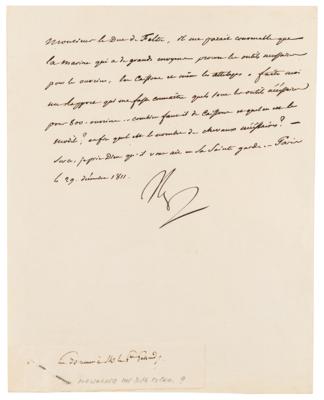 Monsieur le Duc de Feltre, il me parait convenable que
la marine qui a de grands moyens prouve les outils nécessaires
pour les ouvriers, les Caissons et même les attelages. faites moi
un rapport qui me fasse connaître quels sont les outils nécessaires
pour 600 ouvriers. combien faut-il de Caissons et quel en est le
modèle? enfin quel est le nombre de chevaux nécessaires? —
Sur ce, je prie Dieu qu'il vous ait en sa Sainte garde. — Paris
le 29. décembre 1811.
Np